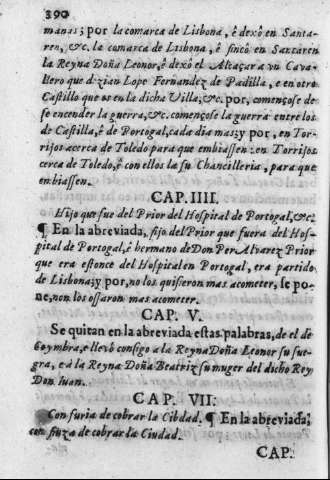 390
manas; por la comarca de Lisbona, é dexó en Santa-
ren, &c. la comarca de Lisbona, é fincó en Santaren
la Reyna Doña Leonor, é dexó el Alcaçar a vn Cava-
llero que dezian Lope Fernandez de Padilla, e en otro
Castillo que os en la dicha Villa, &c. por, començose de
se encender la guerra, &c. començose la guerra entre los
de Castilla, é de Portogal, cada dia mas; y por, en Tor-
rijos acerca de Toledo para que embiassen: en Torrijos
cerca de Toledo, é con ellos la su Chancilleria, para que
embiassen.
CAP. IIII.
Hijo que fue del Prior del Hospital de Portogal, &c.
¶ En la abreviada, fijo del Prior que fuera del Hos-
pital de Portogal, é hermano de Don Per Alvarez Prior
que era estonce del Hospital en Portogal, era partido
de Lisbona; y por, no los quisieron mas acometer, se po-
ne, non los ossaron mas acometer.
CAP. V.
Se quitan en la abreviada estas palabras, de el de
Coymbra, e llevó consigo a la Reyna Doña Leonor su sue-
gra, e á la Reyna Doña Beatriz su muger del dicho Rey
Don Iuan.
CAP. VII.
Con furia de cobrar la Cibdad. ¶ En la abreviada;
con fiuza de cobrar la Ciudad.
CAP.